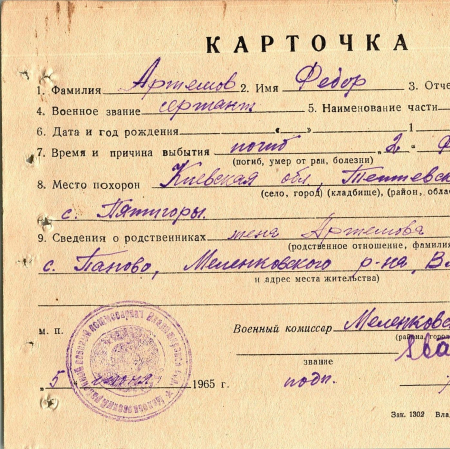 КАРТОЧКА
1. Фамилия Артемов 2. Имя Федор 3. Отче
4. Военное звание сержант 5. Наименование части
6. Дата и год рождения « » 1
7. Время и причина выбытия погиб 2 Ф
(погиб, умер от ран, болезни)
8. Место похорон Киевская обл, Тетиевск
(село, город) (кладбище), (район, облас
с. Пятигоры.
9. Сведения о родственниках жена Артемова
(родственное отношение, фамилия
с. Паново, Меленковского р-на, Вл
и адрес места жительства)
м. п. Военный комиссар Меленковс
(района, горо
звание
5 июня 1965 г. подп.
Зак. 1302 Вла